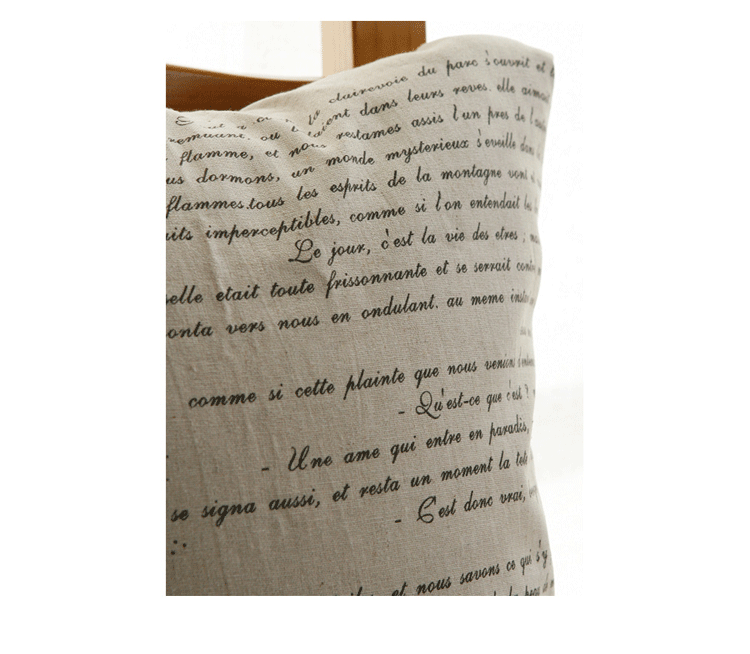 clairevoie du parc s'ouvrit et
remuant. ou dans leurs reves. elle
flamme, et nous restames assis l'un pres de
us dormons, un monde mysterieux s'eveille dans
flammes.tous les esprits de la montagne vont
its imperceptibles, comme si l'on entendait
Le jour, c'est la vie des etres ;
elle etait toute frissonnante et se serrait
onta vers nous en ondulant. au meme
comme si cette plainte que nous
- Qu'est-ce que c'est ?
- Une ame qui entre en paradis,
se signa aussi, et resta un moment la
- C'est donc vrai,
et nous savons ce qui s'y